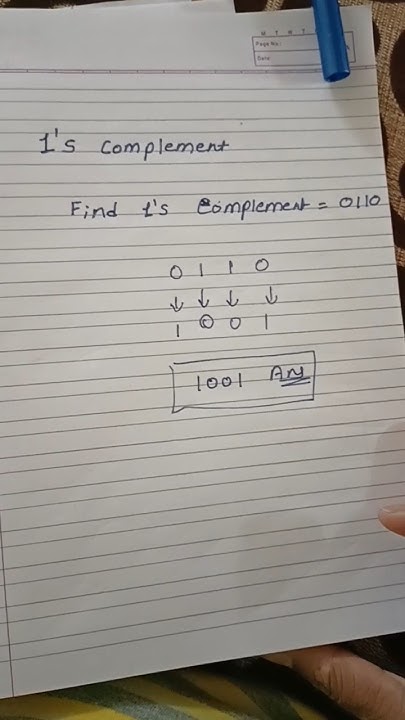 M T W T
Page No.:
Date:
1's complement
Find 1's complement = 0110
0 1 1 0
↓ ↓ ↓ ↓
1 0 0 1
1001 Ans